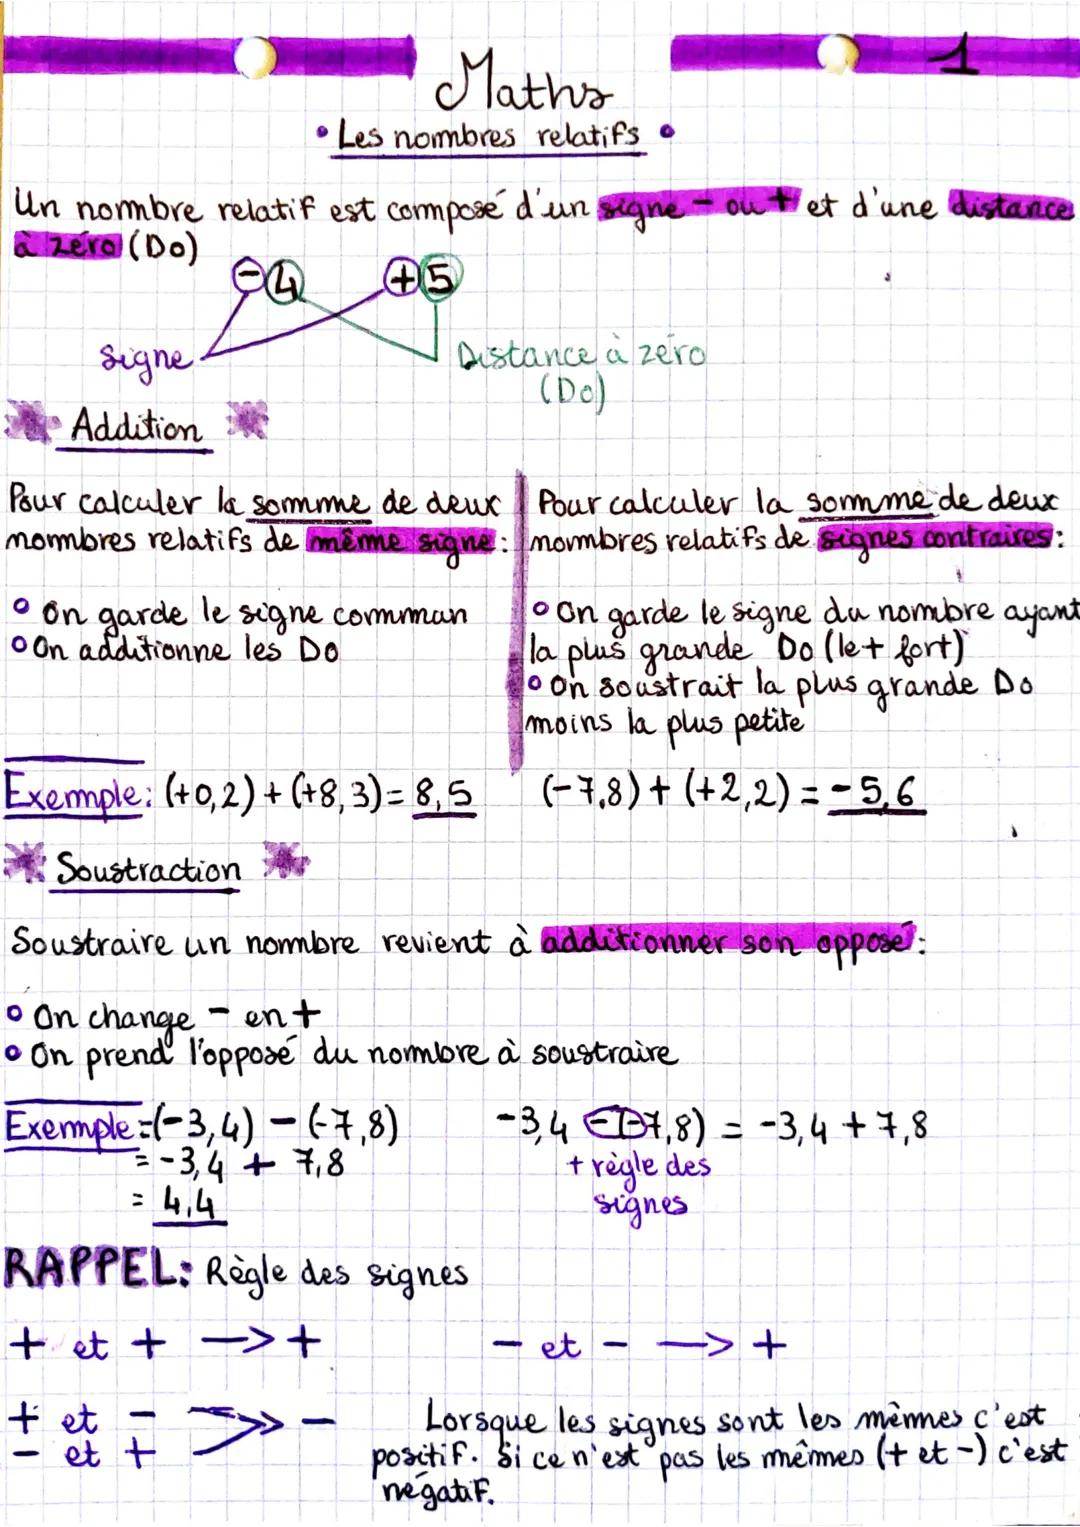 1
Maths
• Les nombres relatifs •
Un nombre relatif est composé d'un signe - ou + et d'une distance
à zéro (Do)
-4 +5
signe Distance à zéro
(Do)
Addition
Pour calculer la somme de deux
nombres relatifs de même signe :
° On garde le signe commun
° On additionne les Do
Pour calculer la somme de deux
nombres relatifs de signes contraires :
° On garde le signe du nombre ayant
la plus grande Do (le + fort)
° On soustrait la plus grande Do
moins la plus petite
Exemple : (+0,2) + (+8,3) = 8,5 (-7,8) + (+2,2) = -5,6
Soustraction
Soustraire un nombre revient à additionner son opposé :
° On change - en +
° On prend l'opposé du nombre à soustraire
Exemple = (-3,4) - (-7,8)
= -3,4 + 7,8
= 4,4
-3,4 -(-7,8) = -3,4 + 7,8
+ règle des
signes
RAPPEL : Règle des signes
+ et + -> + - et - -> +
+ et - >> -
- et +
Lorsque les signes sont les mêmes c'est
positif. Si ce n'est pas les mêmes (+ et -) c'est
négatif.